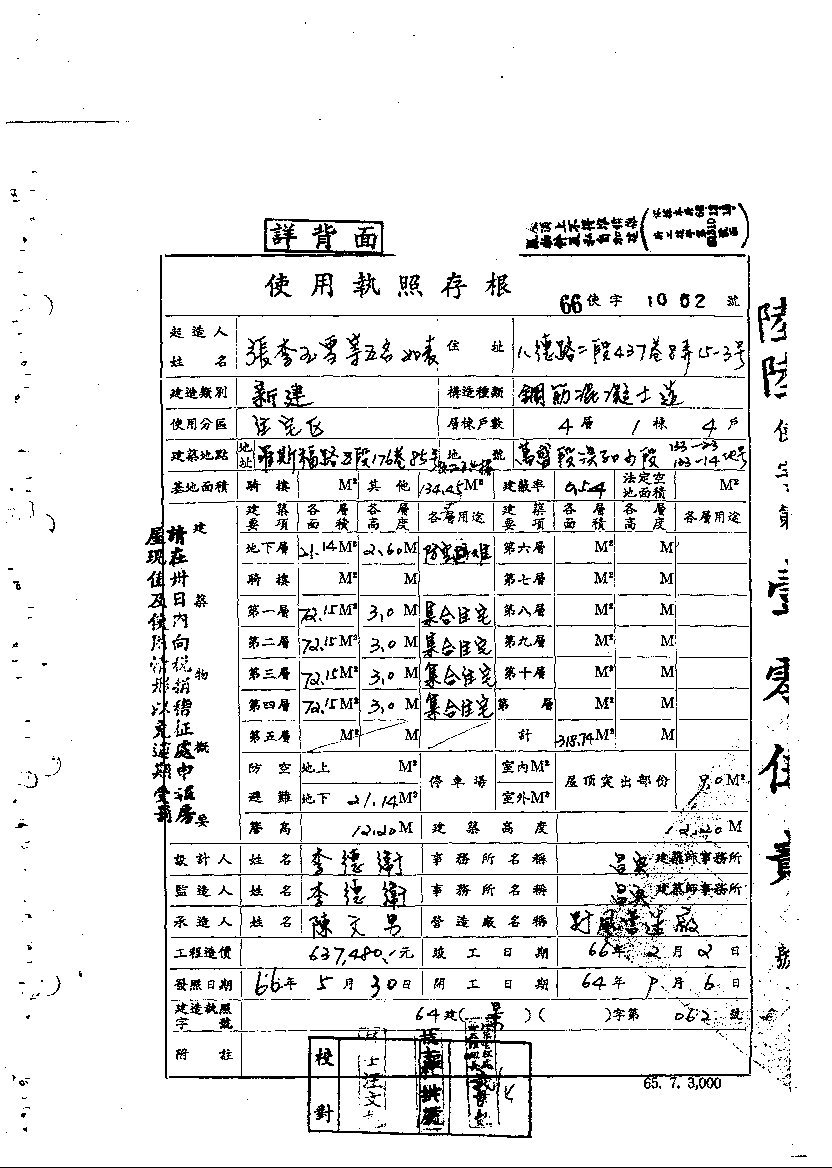 詳背面
使用執照存根
66使字1002號
起造人姓名 張李玉雪等五名如表 住址 八德路二段437巷8弄15-3號
建造類別 新建 構造種類 鋼筋混凝土造
使用分區 住宅區 層棟戶數 4層1棟4戶
建築地點 地址 羅斯福路五段176巷85號 地號 萬盛段溪口小段 133-23 133-14地號
基地面積 騎樓 M² 其他 134.45M² 建蔽率 0.54 法定空地面積 M²
建築要項 各層面積 各層高度 各層用途 建築要項 各層面積 各層高度 各層用途
地下層 21.14M² 2.60M 防空避難 第六層 M² M
騎樓 M² M 第七層 M² M
第一層 72.15M² 3.0M 集合住宅 第八層 M² M
第二層 72.15M² 3.0M 集合住宅 第九層 M² M
第三層 72.15M² 3.0M 集合住宅 第十層 M² M
第四層 72.15M² 3.0M 集合住宅 第 層 M² M
第五層 M² M 計 318.74M²
建築物概要
防空避難 地上 M² 停車場 室內M² 屋頂突出部份 9.0M²
地下 21.14M² 室外M²
簷高 12.20M 建築高度 12.20M
設計人 姓名 李德衛 事務所名稱 建築師事務所
監造人 姓名 李德衛 事務所名稱 建築師事務所
承造人 姓名 陳文男 營造廠名稱 營造廠
工程造價 637,480.-元 竣工日期 66年2月2日
發照日期 66年5月30日 開工日期 64年9月6日
建造執照字號 64建(景)( )字第062號
附註
校對
65. 7. 3,000
請在卅日內向稅捐稽征處申報房
屋現值及使用情形以免逾期受罰
陸陸使字第壹零零貳號